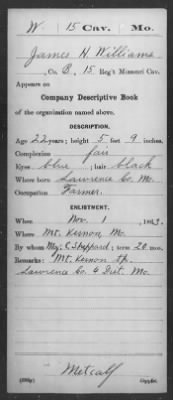 W 15 Cav. Mo.
James H Williams
, Co. B, 15 Reg't Missouri Cav.
Appears on
Company Descriptive Book
of the organization named above.
DESCRIPTION.
Age 22 years; height 5 feet 9 inches.
Complexion fair
Eyes blue ; hair black
Where born Lawrence Co. Mo.
Occupation Farmer.
ENLISTMENT.
When Nov. 1 , 1863.
Where Mt. Vernon, Mo.
By whom Maj. C. Sheppard ; term 20 mos.
Remarks: Mt. Vernon tp.
Lawrence Co. 6 Dist. Mo.
Metcalf
Copyist.